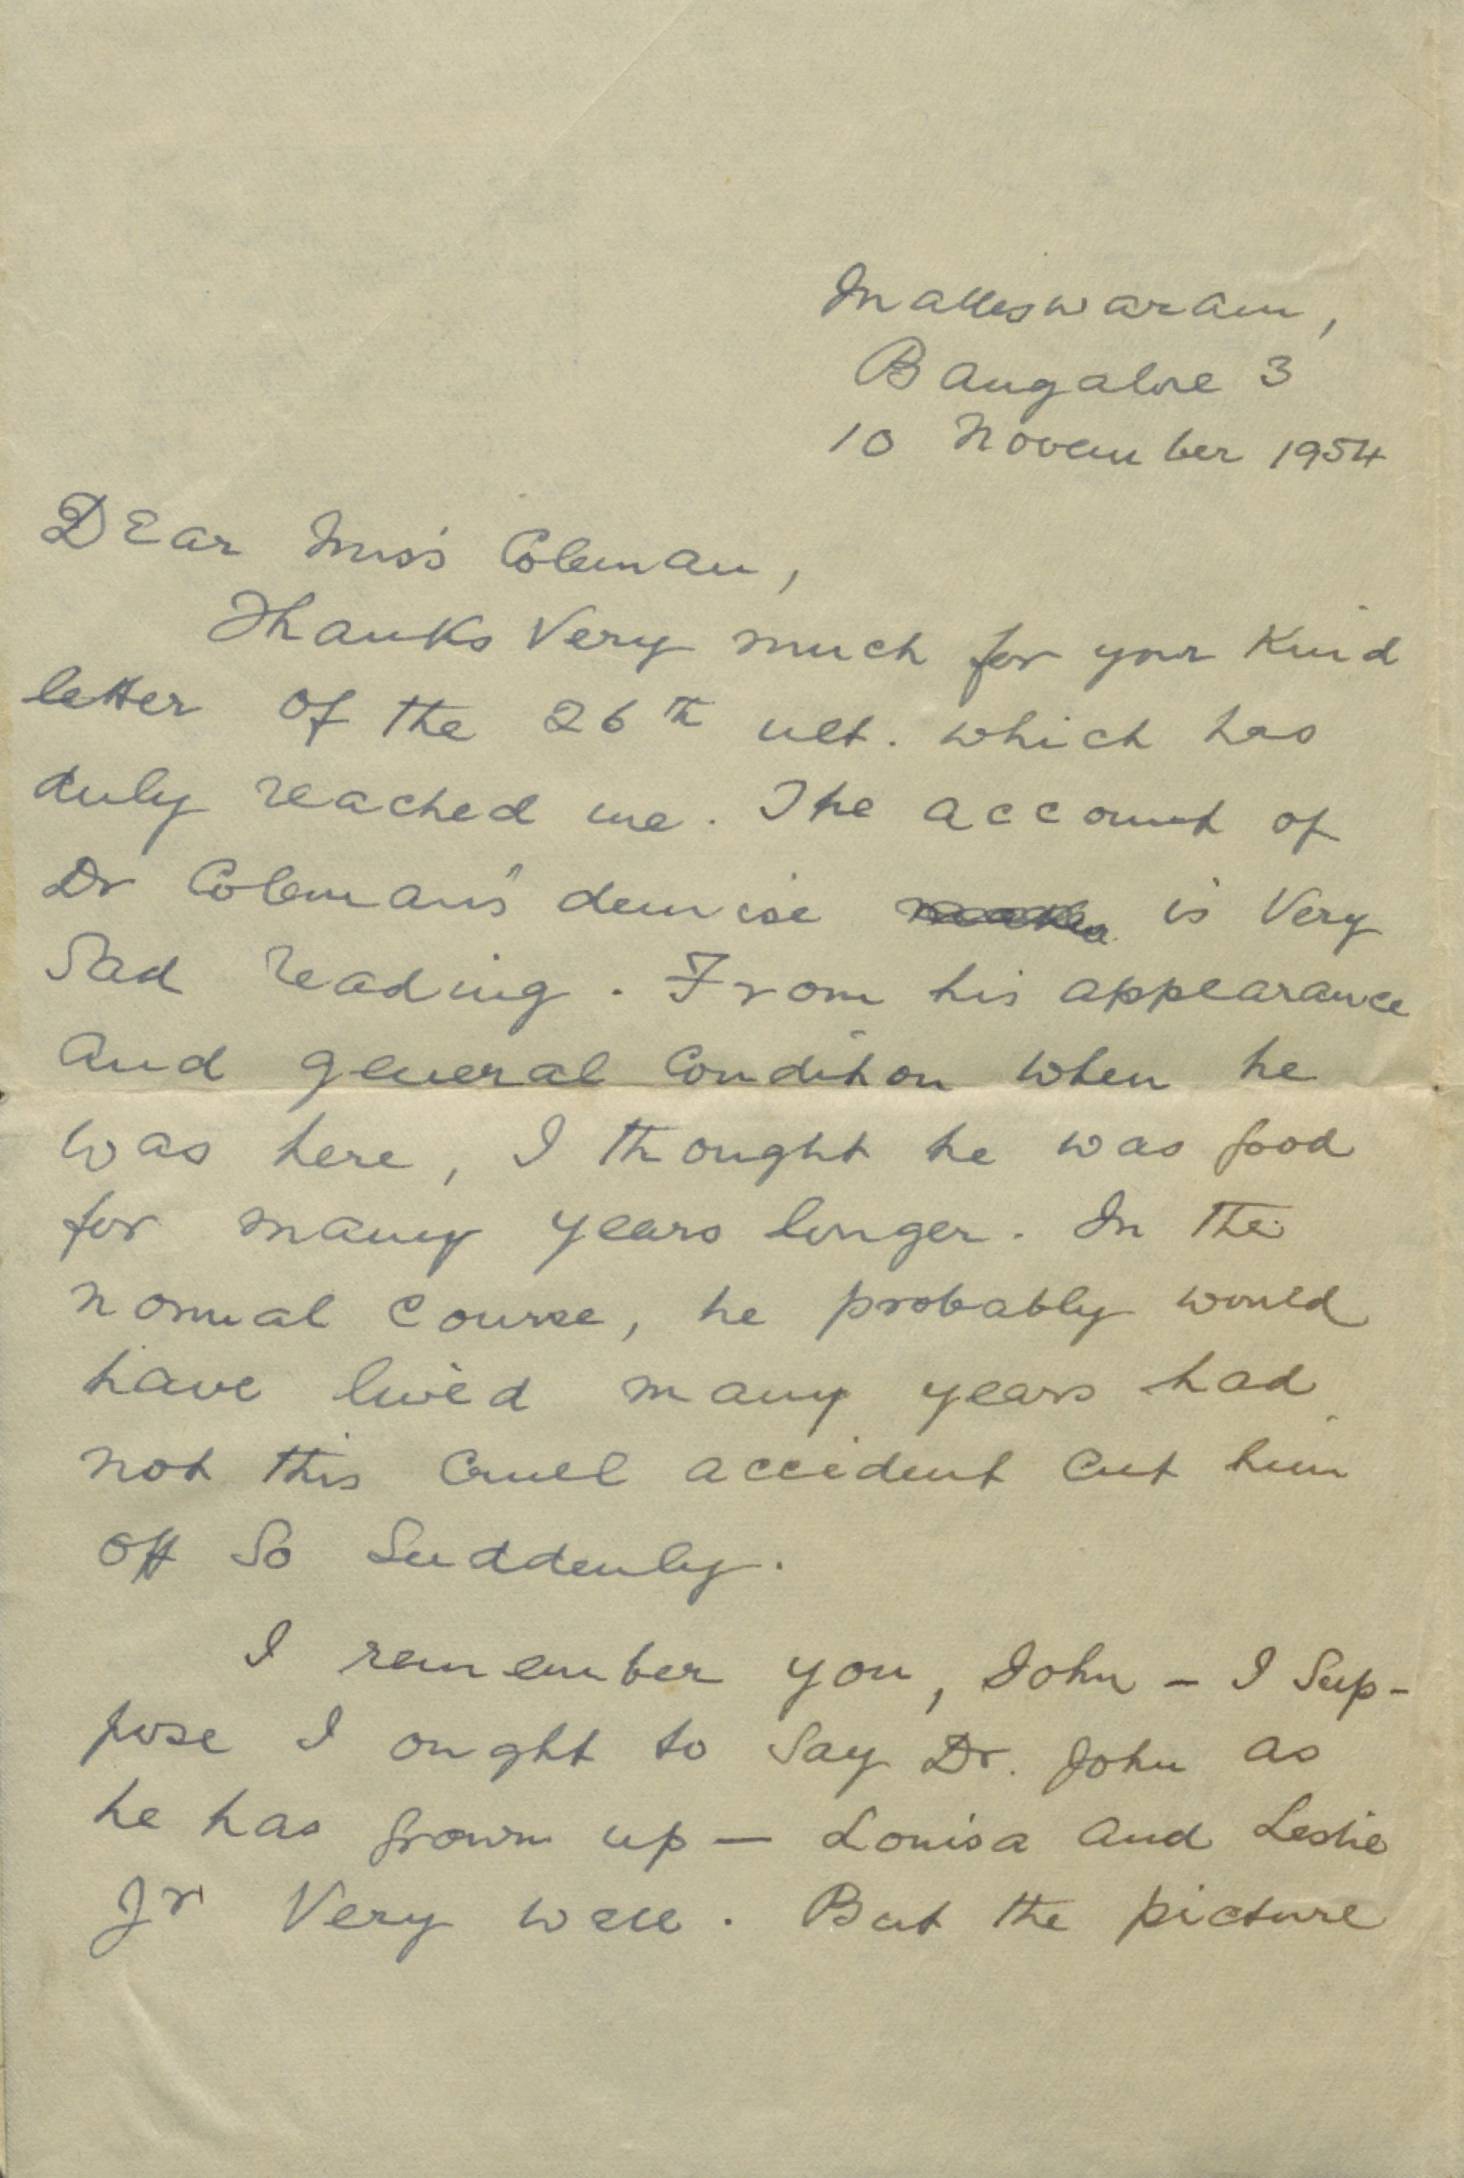 Malleswaram,
Bangalore 3
10 November 1954
Dear Miss Coleman,
Thanks Very much for your Kind
letter of the 26th ult. which has
duly reached me. The account of
Dr Coleman's demise is Very
Sad reading. From his appearance
and general Condition when he
was here, I thought he was good
for many years longer. In the
normal course, he probably would
have lived many years had
not this cruel accident cut him
off So Suddenly.
I remember you, John – I Sup-
pose I ought to Say Dr. John as
he has grown up – Louisa and Leslie
Jr Very well. But the picture